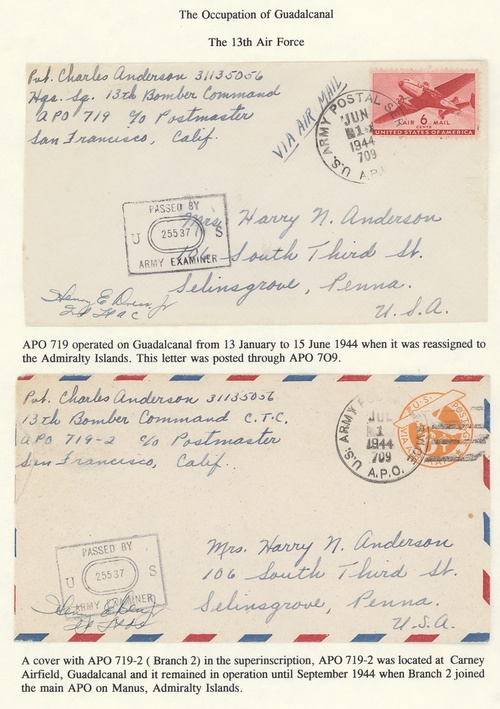 The Occupation of Guadalcanal
The 13th Air Force
Pvt. Charles Anderson 31135056
Hqs. Sq. 13th Bomber Command
APO 719 c/o Postmaster
San Francisco, Calif.
VIA AIR MAIL
U.S. ARMY POSTAL SER
JUN
1944
709
A.P.
AIR 6 MAIL
CENTS
UNITED STATES OF AMERICA
PASSED BY
U 25537 S
ARMY EXAMINER
Mrs. Harry N. Anderson
106 South Third St.
Selinsgrove, Penna.
U.S.A.
APO 719 operated on Guadalcanal from 13 January to 15 June 1944 when it was reassigned to
the Admiralty Islands. This letter was posted through APO 7O9.
Pvt. Charles Anderson 31135056
13th Bomber Command C.T.C.
APO 719-2 c/o Postmaster
San Francisco, Calif.
U.S. ARMY
JUL
1
1944
709
A.P.O.
U.S. POSTAGE
VIA AIR
PASSED BY
U 25537 S
ARMY EXAMINER
Mrs. Harry N. Anderson
106 South Third St.
Selinsgrove, Penna.
U.S.A.
A cover with APO 719-2 ( Branch 2) in the superinscription, APO 719-2 was located at Carney
Airfield, Guadalcanal and it remained in operation until September 1944 when Branch 2 joined
the main APO on Manus, Admiralty Islands.